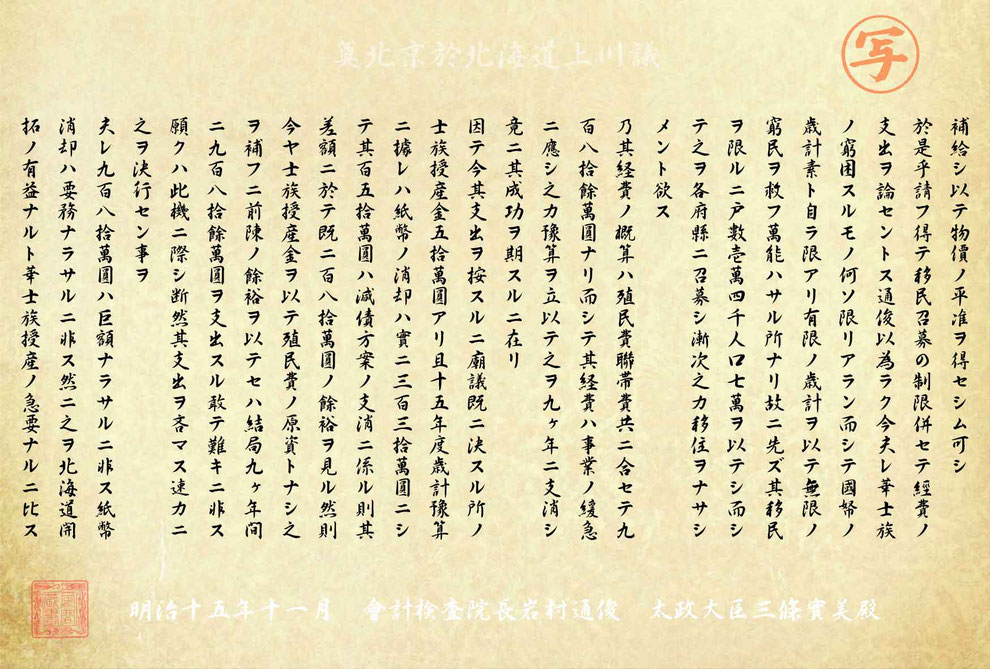 奠北京於北海道上川議
写
補給シ以テ物價ノ平准ヲ得セシム可シ
於是乎請フ得テ移民召募の制限併セテ經費ノ
支出ヲ論セントス通俊以為ラク今夫レ華士族
ノ窮困スルモノ何ソ限リアラン而シテ國帑ノ
歳計素ト自ラ限アリ有限ノ歳計ヲ以テ無限ノ
窮民ヲ救フ萬能ハサル所ナリ故ニ先ズ其移民
ヲ限ルニ戸数壱萬四千人口七萬ヲ以テシ而シ
テ之ヲ各府縣ニ召募シ漸次之カ移住ヲナサシ
メント欲ス
乃其経費ノ概算ハ殖民費聯帯費共ニ合セテ九
百八拾餘萬圓ナリ而シテ其経費ハ事業ノ緩急
ニ應シ之カ豫算ヲ立以テ之ヲ九ヶ年ニ支消シ
竟ニ其成功ヲ期スルニ在リ
因テ今其支出ヲ按スルニ廟議既ニ決スル所ノ
士族授産金五拾萬圓アリ且十五年度歳計豫算
ニ據レハ紙幣ノ消却ハ實ニ三百三拾萬圓ニシ
テ其百五拾萬圓ハ减債方案ノ支消ニ係ル則其
差額ニ於テ既ニ百八拾萬圓ノ餘裕ヲ見ル然則
今ヤ士族授産金ヲ以テ殖民費ノ原資トナシ之
ヲ補フニ前陳ノ餘裕ヲ以テセハ結局九ヶ年間
ニ九百八拾餘萬圓ヲ支出スル敢テ難キニ非ス
願クハ此機ニ際シ断然其支出ヲ吝マス速カニ
之ヲ決行セン事ヲ
夫レ九百八拾萬圓ハ巨額ナラサルニ非ス紙幣
消却ハ要務ナラサルニ非ス然ニ之ヲ北海道開
拓ノ有益ナルト華士族授産ノ急要ナルニ比ス
明治十五年十一月 會計検査院長岩村通俊 太政大臣三條實美殿